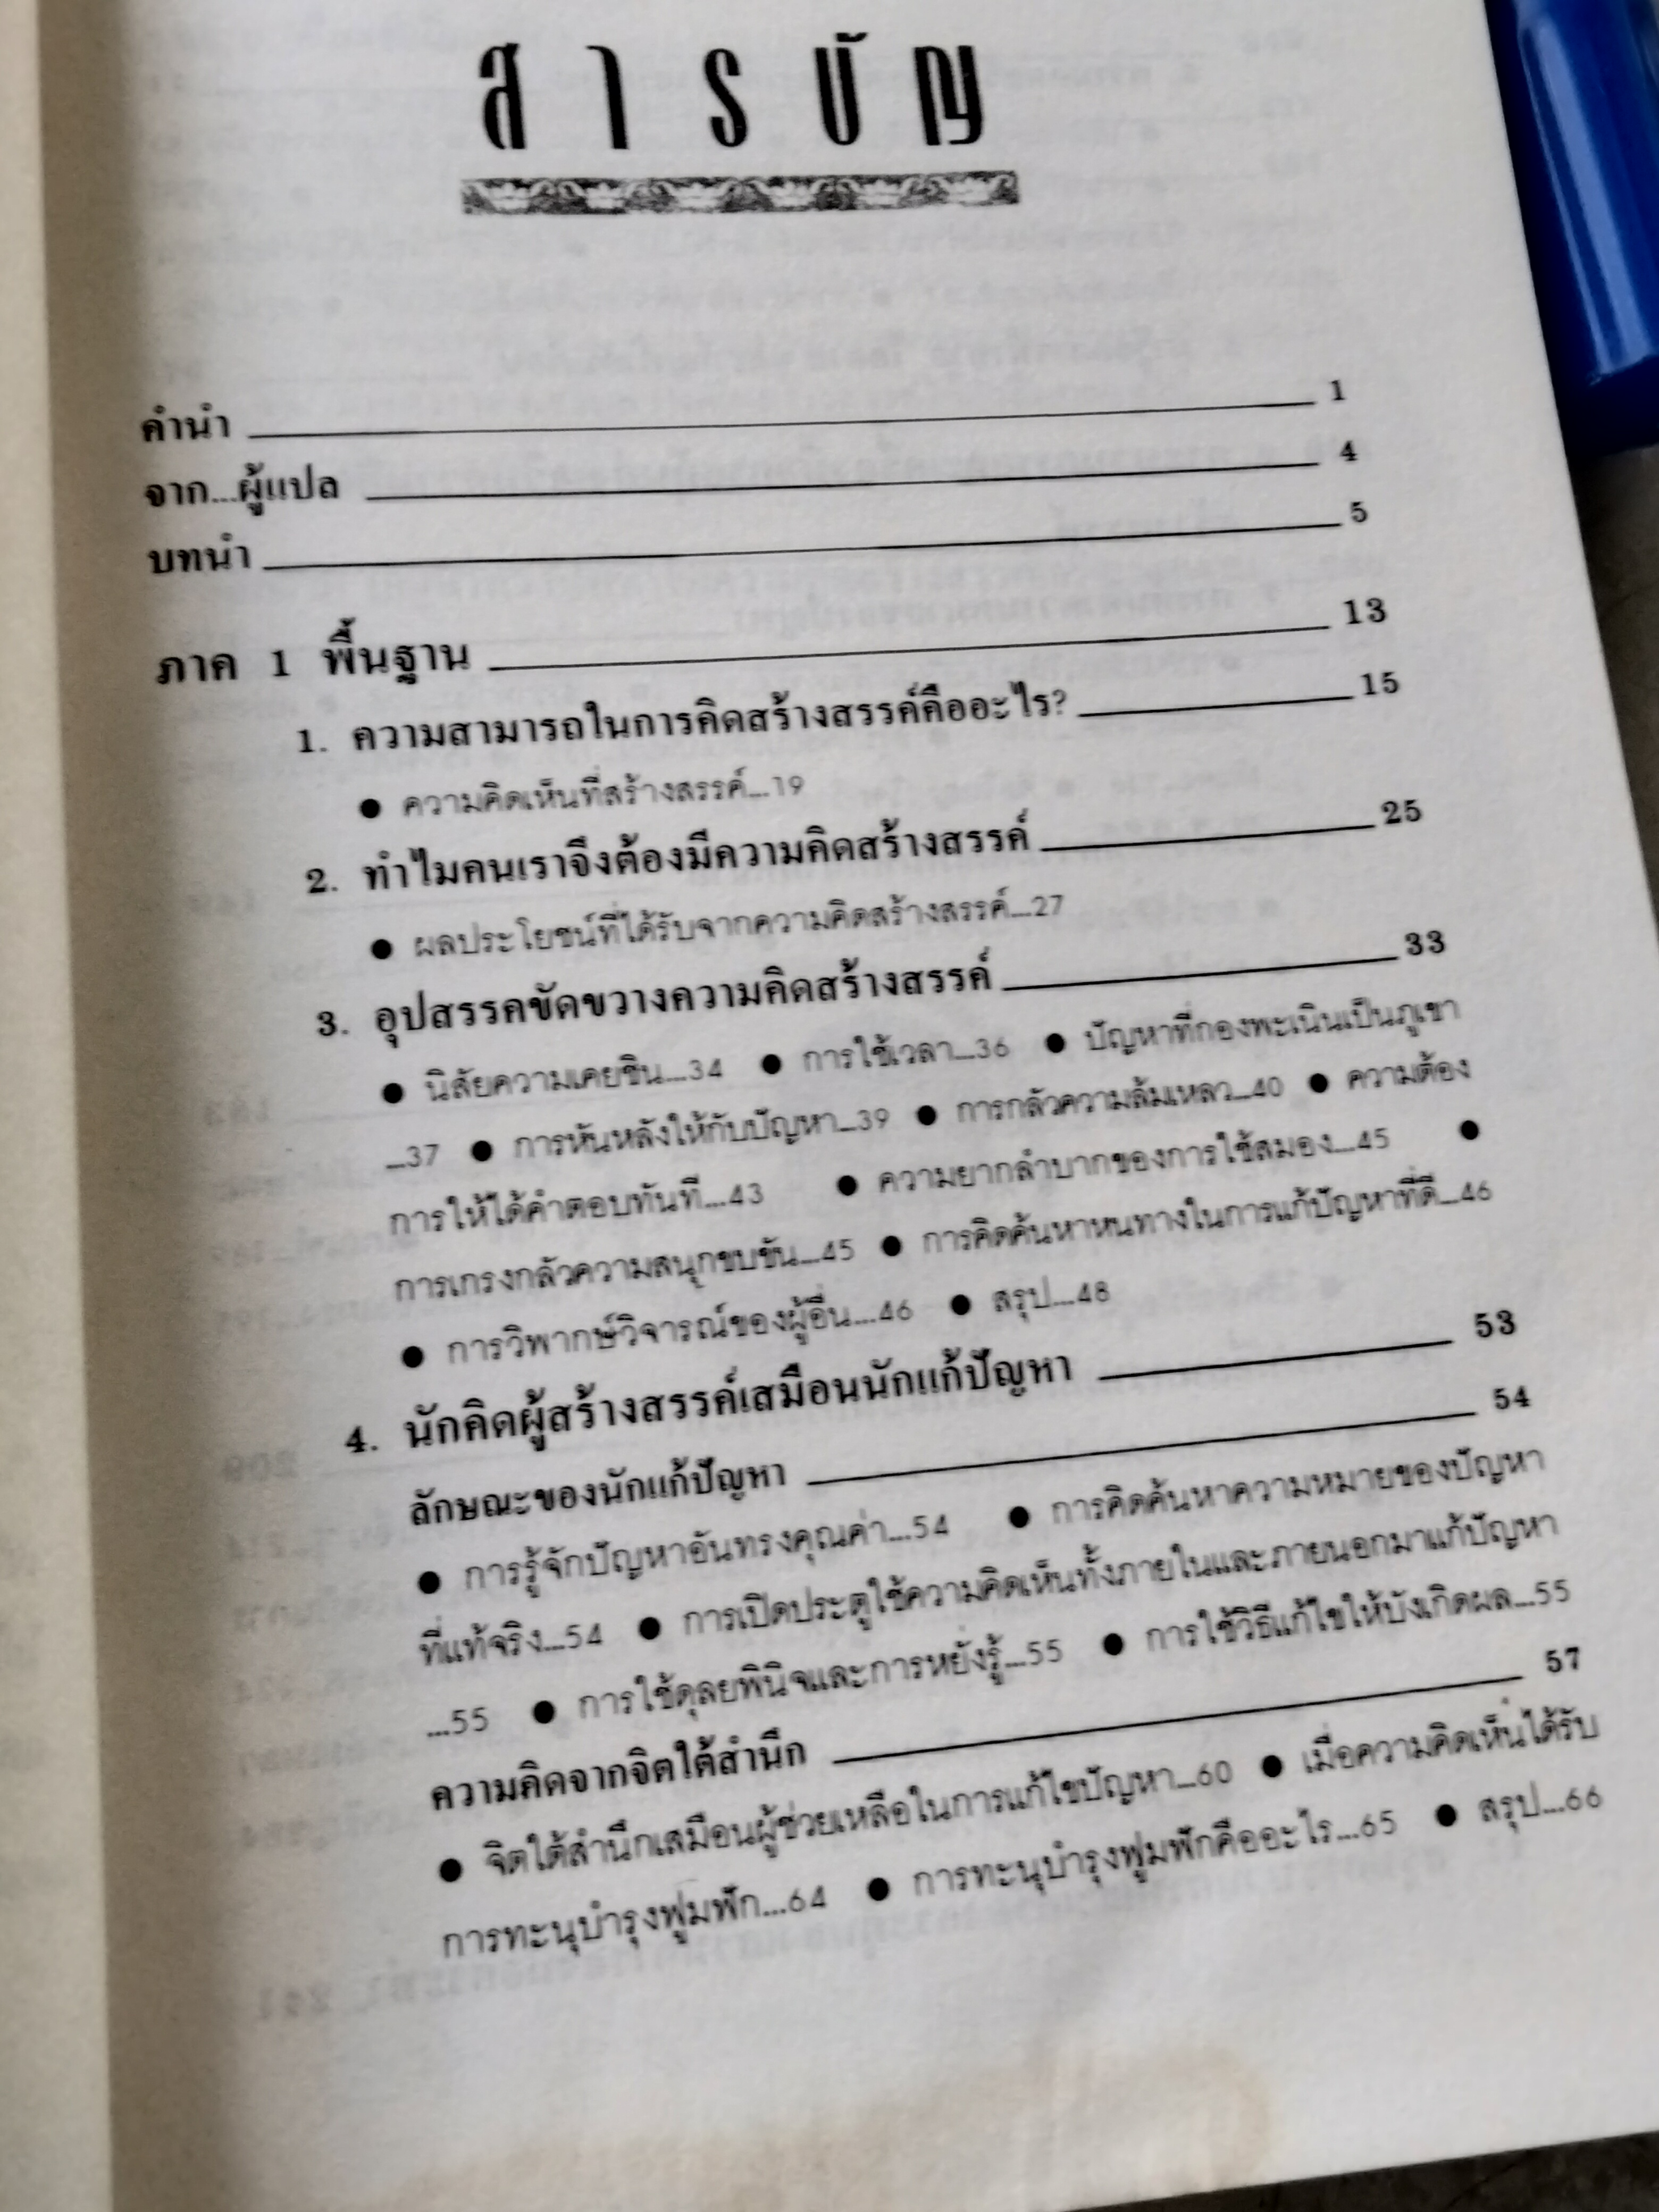 สารบัญ
คำนำ 1
จาก...ผู้แปล 4
บทนำ 5
ภาค 1 พื้นฐาน 13
1. ความสามารถในการคิดสร้างสรรค์คืออะไร? 15
● ความคิดเห็นที่สร้างสรรค์...19
2. ทำไมคนเราจึงต้องมีความคิดสร้างสรรค์ 25
● ผลประโยชน์ที่ได้รับจากความคิดสร้างสรรค์...27
3. อุปสรรคขัดขวางความคิดสร้างสรรค์ 33
● นิสัยความเคยชิน...34 ● การใช้เวลา...36 ● ปัญหาที่กองพะเนินเป็นภูเขา
...37 ● การหันหลังให้กับปัญหา...39 ● การกลัวความล้มเหลว...40 ● ความต้อง
การให้ได้คำตอบทันที...43 ● ความยากลำบากของการใช้สมอง...45 ●
การเกรงกลัวความสนุกขบขัน...45 ● การคิดค้นหาหนทางในการแก้ปัญหาที่ดี...46
● การวิพากษ์วิจารณ์ของผู้อื่น...46 ● สรุป...48
4. นักคิดผู้สร้างสรรค์เสมือนนักแก้ปัญหา 53
ลักษณะของนักแก้ปัญหา 54
● การรู้จักปัญหาอันทรงคุณค่า...54 ● การคิดค้นหาความหมายของปัญหา
ที่แท้จริง...54 ● การเปิดประตูใช้ความคิดเห็นทั้งภายในและภายนอกมาแก้ปัญหา
...55 ● การใช้ดุลยพินิจและการหยั่งรู้...55 ● การใช้วิธีแก้ไขให้บังเกิดผล...55
ความคิดจากจิตใต้สำนึก 57
● จิตใต้สำนึกเสมือนผู้ช่วยเหลือในการแก้ไขปัญหา...60 ● เมื่อความคิดเห็นได้รับ
การทะนุบำรุงฟูมฟัก...64 ● การทะนุบำรุงฟูมฟักคืออะไร...65 ● สรุป...66